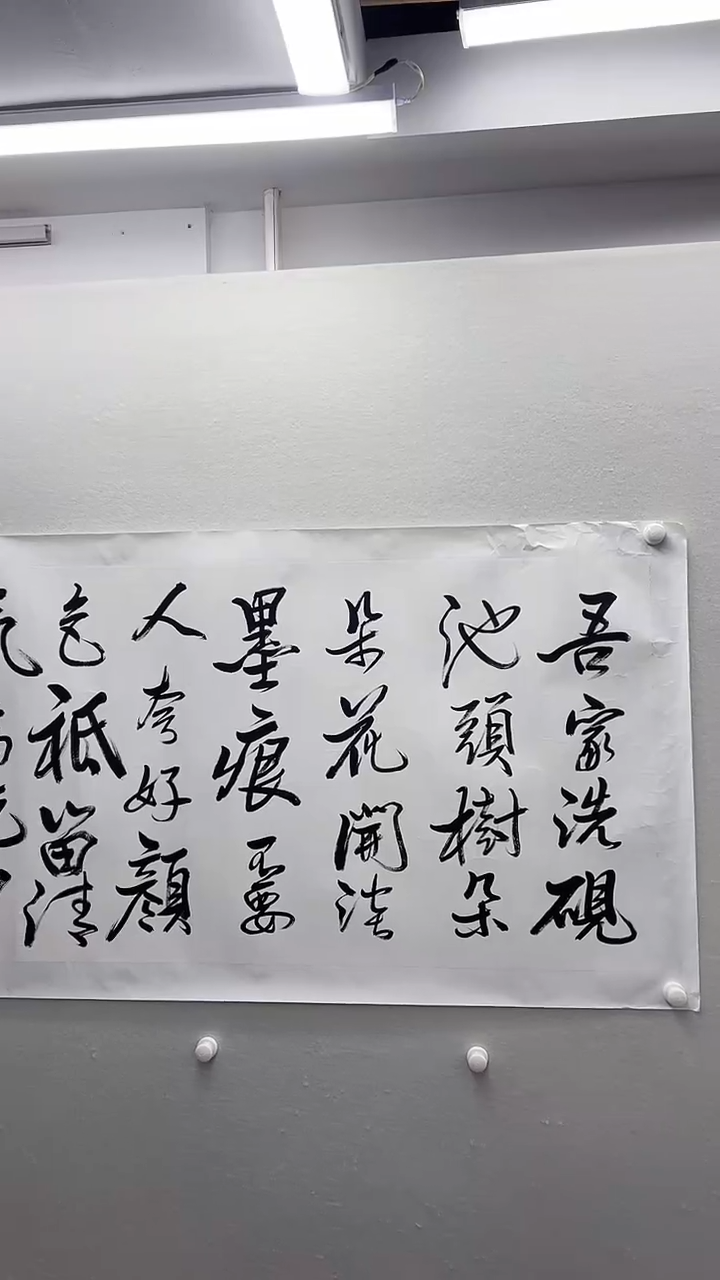 吾家洗硯
池頭樹朵
朵花開淡
墨痕不要
人夸好顏
色祗留清
氣